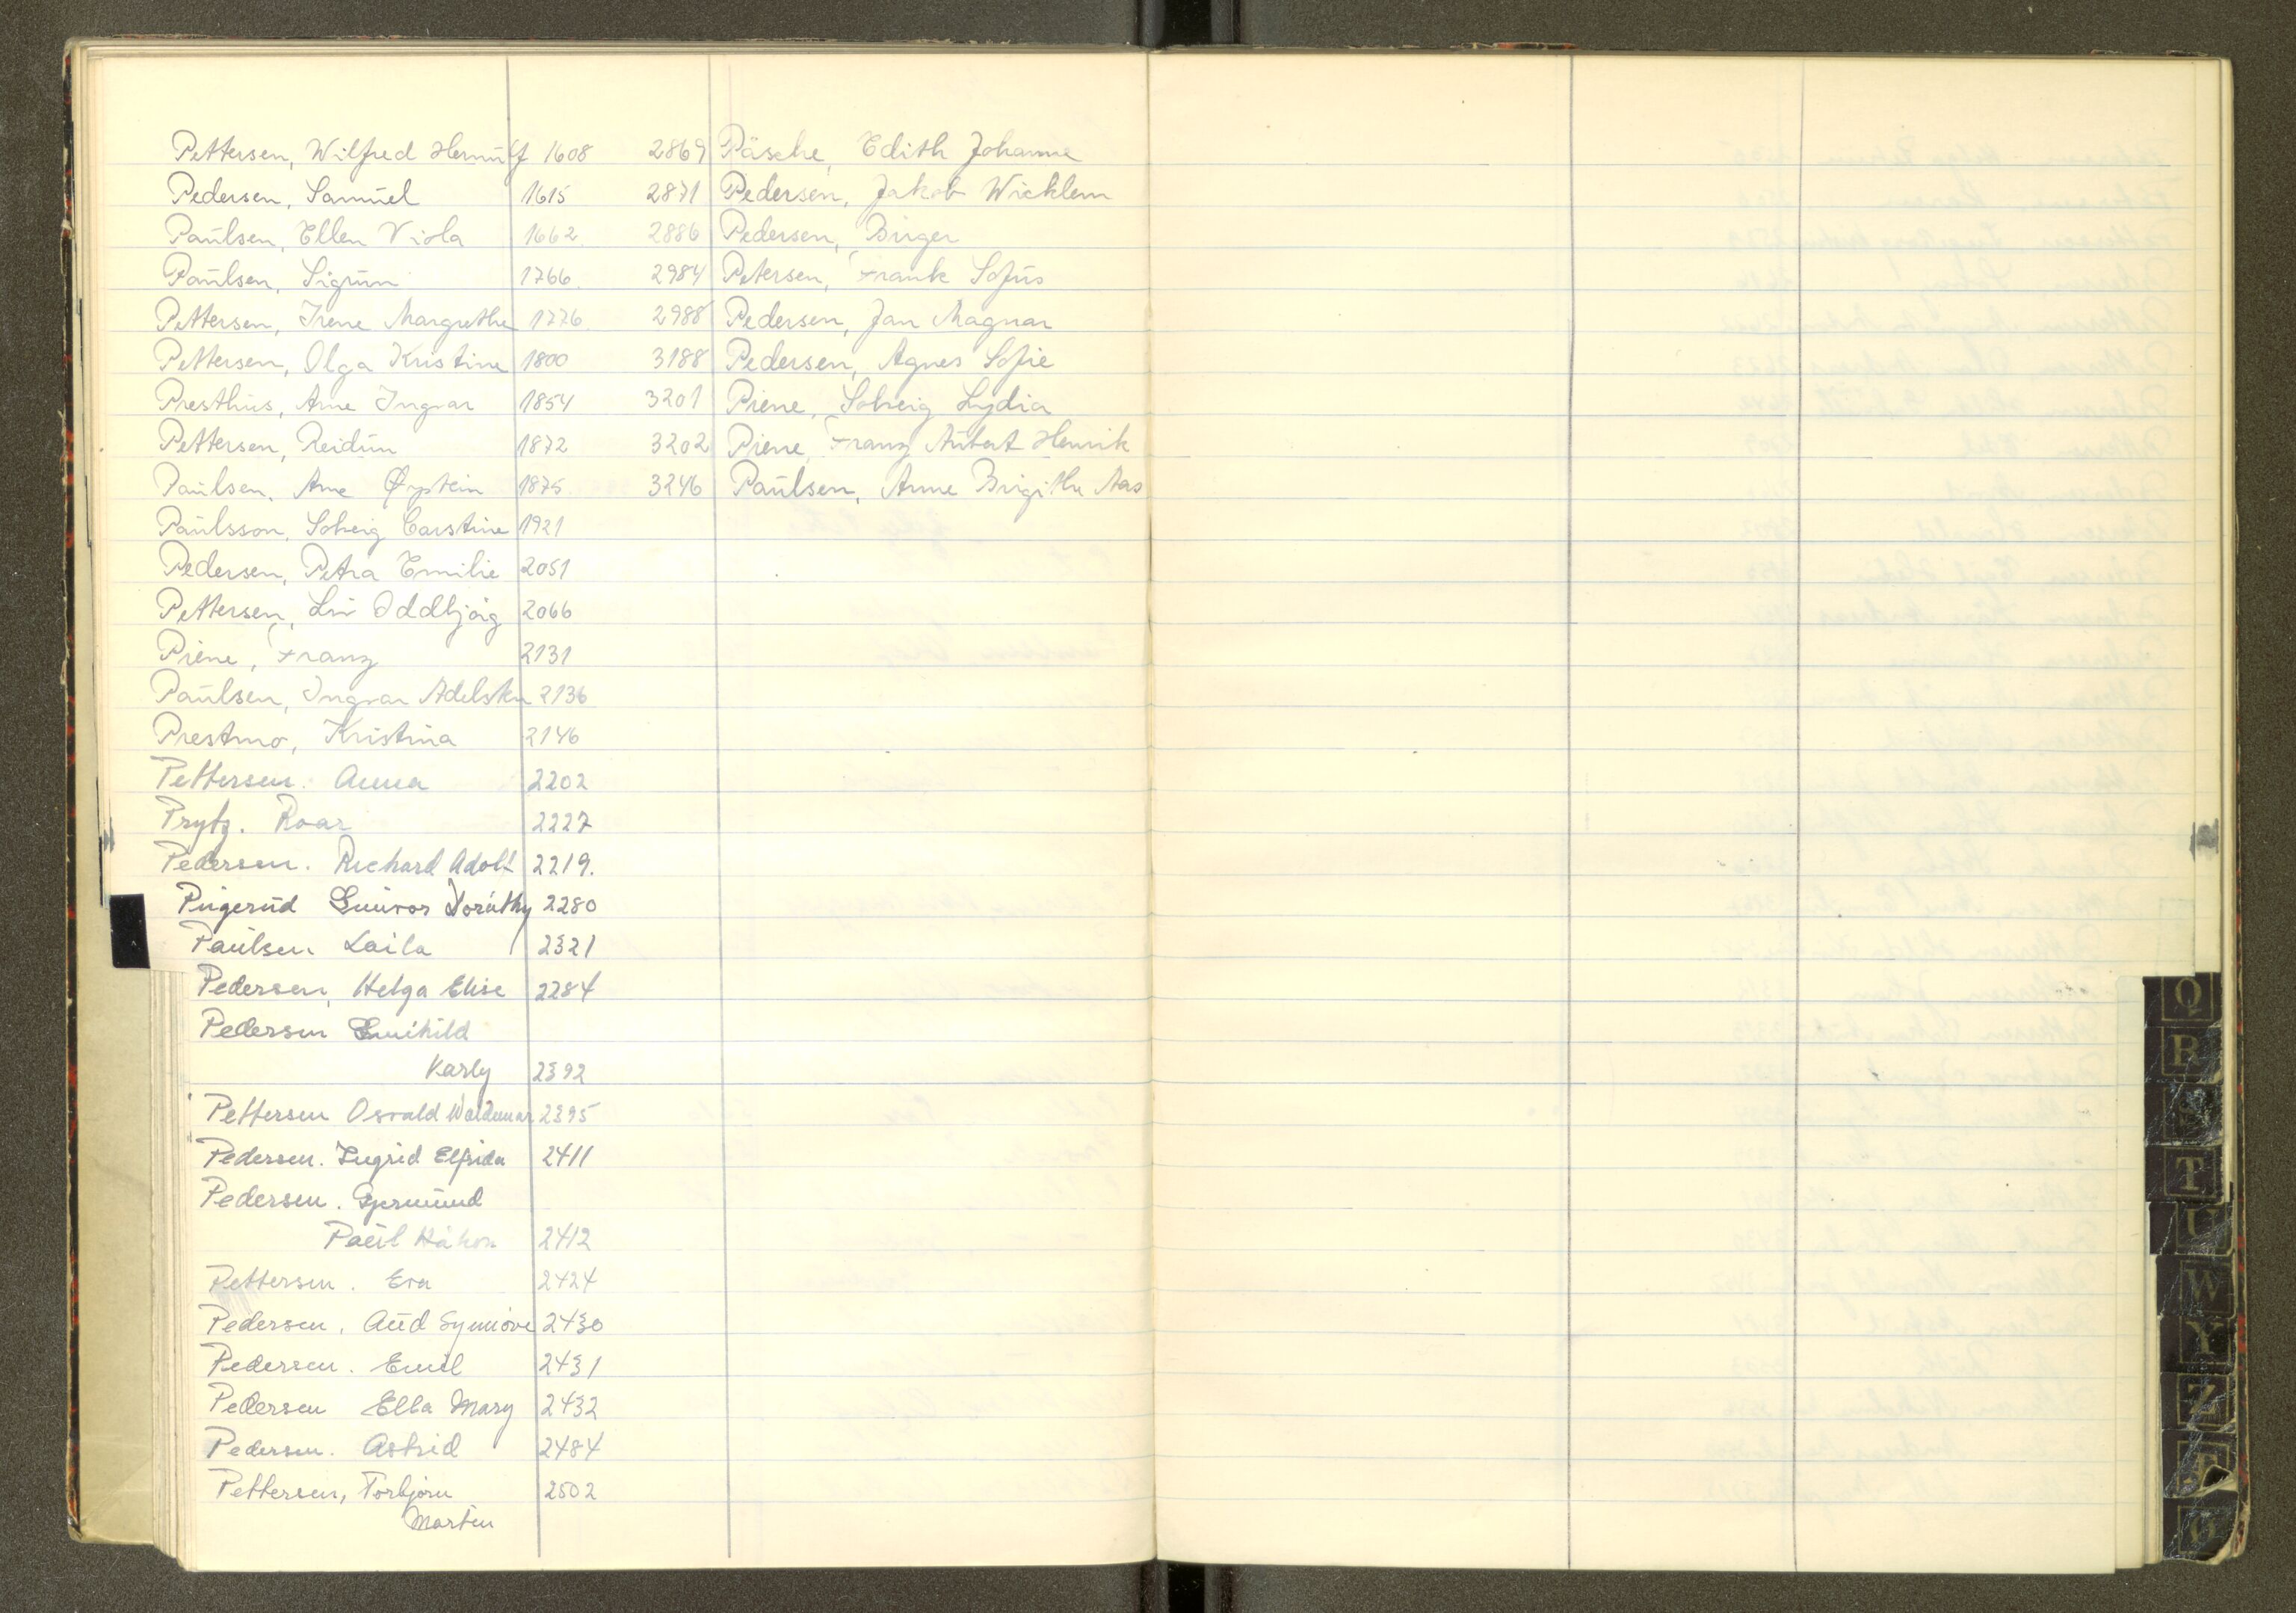 Pettersen, Wilfred Hernulf 1608
Pedersen, Samuel 1615
Paulsen, Ellen Viola 1662.
Paulsen, Sigrun 1766.
Pettersen, Irene Margrethe 1776.
Pettersen, Olga Kristine 1800
Presthus, Arne Ingvar 1854
Pettersen, Reidun 1872
Paulsen, Arne Øystein 1875.
Paulsson, Solveig Carstine 1921
Pedersen, Petra Emilie 2051
Pettersen, Liv Oddbjørg 2066
Piene, Franz 2131
Paulsen, Ingvar Adelsten 2136
Prestmo, Kristina 2146
Pettersen. Anna 2202
Prytz. Roar 2227
Pedersen. Richard Adolf 2219.
Pugerud Gunvor Dorothy 2280
Paulsen Laila 2321
Pedersen, Helga Elise 2284
Pedersen Gunhild
Karly 2392
Pettersen Osvald Waldemar 2395
Pedersen. Ingrid Elfrida 2411
Pedersen. Gjermund
Paul Håkon 2412
Pettersen. Eva 2424
Pedersen. Aud Synnøve 2430
Pedersen. Emil 2431
Pedersen Ella Mary 2432
Pedersen. Astrid 2484
Pettersen, Torbjørn 2502
Morten
2869 Päsche, Edith Johanne
2871 Pedersen, Jakob Wicklem
2886 Pedersen, Birger
2984 Petersen, Frank Sofus
2988 Pedersen, Jan Magnar
3188 Pedersen, Agnes Sofie
3201 Piene, Solveig Lydia
3202 Piene, Franz Aubert Henrik
3246 Paulsen, Anne Birgithe Aas
Q
R
S
T
U
W
Y
Z
Æ
Ø